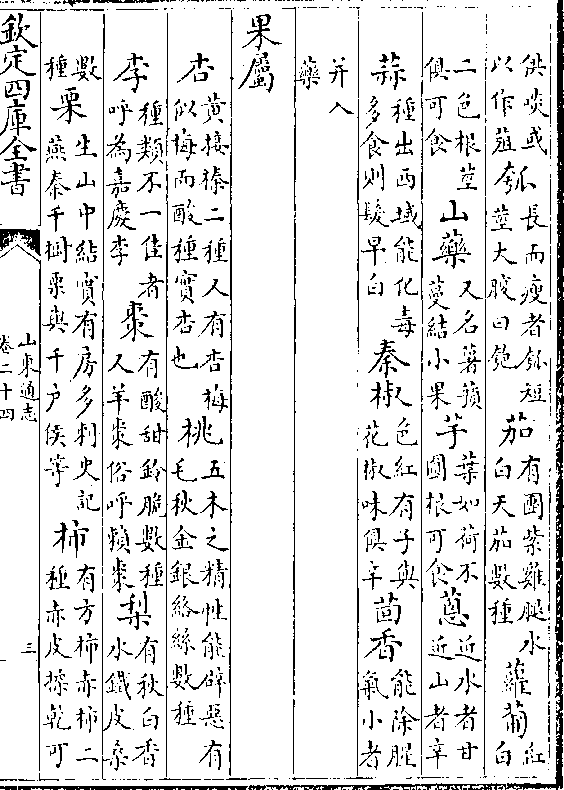 供啖或以作菹
瓠長而瘦者瓠短莖大腹曰匏
茄有團紫雞腿水白天茄數種
蘿蔔紅白
二色根莖俱可食
山藥又名薯蕷蔓結小果
芋葉如荷不圓根可食
蔥近水者甘近山者辛
蒜種出西域能化毒多食則髮早白
秦椒色紅有子與花椒味俱辛
茴香能除腥氣小者
并入藥
果屬
杏黃接榛二種又有杏梅似梅而酸種實杏也
桃五木之精性能辟惡有毛秋金銀絡絲數種
李種類不一佳者呼為嘉慶李
棗有酸甜鈴脆數種又羊棗俗呼賴棗
梨有秋白香水鐵皮桑
數種
栗生山中結實有房多刺史記燕秦千樹栗與千户侯等
柿有方柿赤柿二種赤皮㨪乾可
欽定四庫全書
山東通志
卷二十四
三